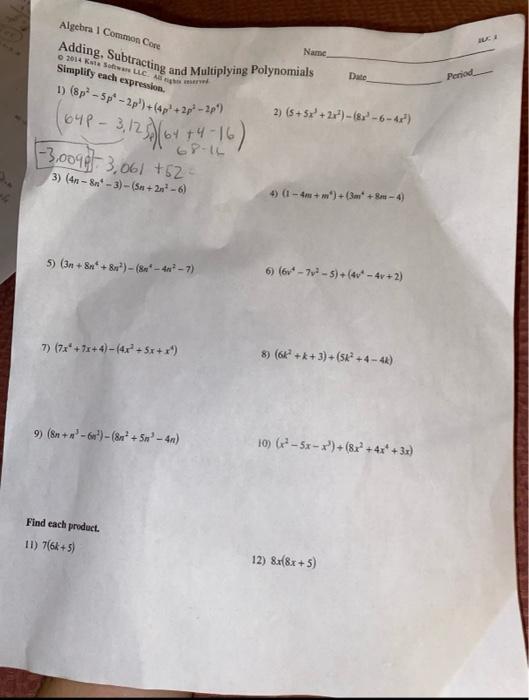 Algebra 1 Common Core
Name
Adding, Subtracting and Multiplying Polynomials
Date
Period
© 2014 Kuta Software LLC. All rights reserved.
Simplify each expression.
1) (8p² − 5p⁴ − 2p³) + (4p³ + 2p² − 2p⁴)
2) (5 + 5x³ + 2x²) − (8x³ − 6 − 4x²)
(64p − 3,125p)(64 + 4 − 16)
68-16
-3,009p - 3,061 + 52
3) (4n − 8n⁴ − 3) − (5n + 2n² − 6)
4) (1 − 4m + m⁴) + (3m⁴ + 8m − 4)
5) (3n + 8n⁴ + 8n²) − (8n⁴ − 4n² − 7)
6) (6v⁴ − 7v² − 5) + (4v⁴ − 4v + 2)
7) (7x⁴ + 7x + 4) − (4x² + 5x + x⁴)
8) (6k² + k + 3) + (5k² + 4 − 4k)
9) (8n + n³ − 6n²) − (8n² + 5n³ − 4n)
10) (x² − 5x − x³) + (8x² + 4x⁴ + 3x)
Find each product.
11) 7(6k + 5)
12) 8x(8x + 5)